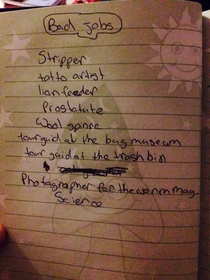 Bad jobs
Stripper
tatto artist
lion feeder
Prostatute
tour guid at the bug museum
tour guid at the trash bin
Photographer for the worm mag-
Science